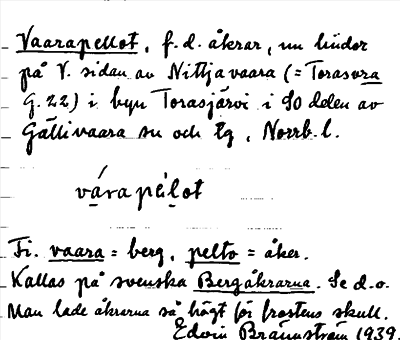 Vaarapellot, f.d. åkrar, nu lindor
på V. sidan av Nittjavaara (= Torasvara
G. 22) i byn Torasjärvi i SO delen av
Gällivaara sn och tg, Norrb. l.
várapélot
Fi. vaara = berg, pelto = åker.
Kallas på svenska Bergåkrarna. Se d.o.
Man lade åkrarna så högt för frostens skull.
Edvin Brännström 1939.